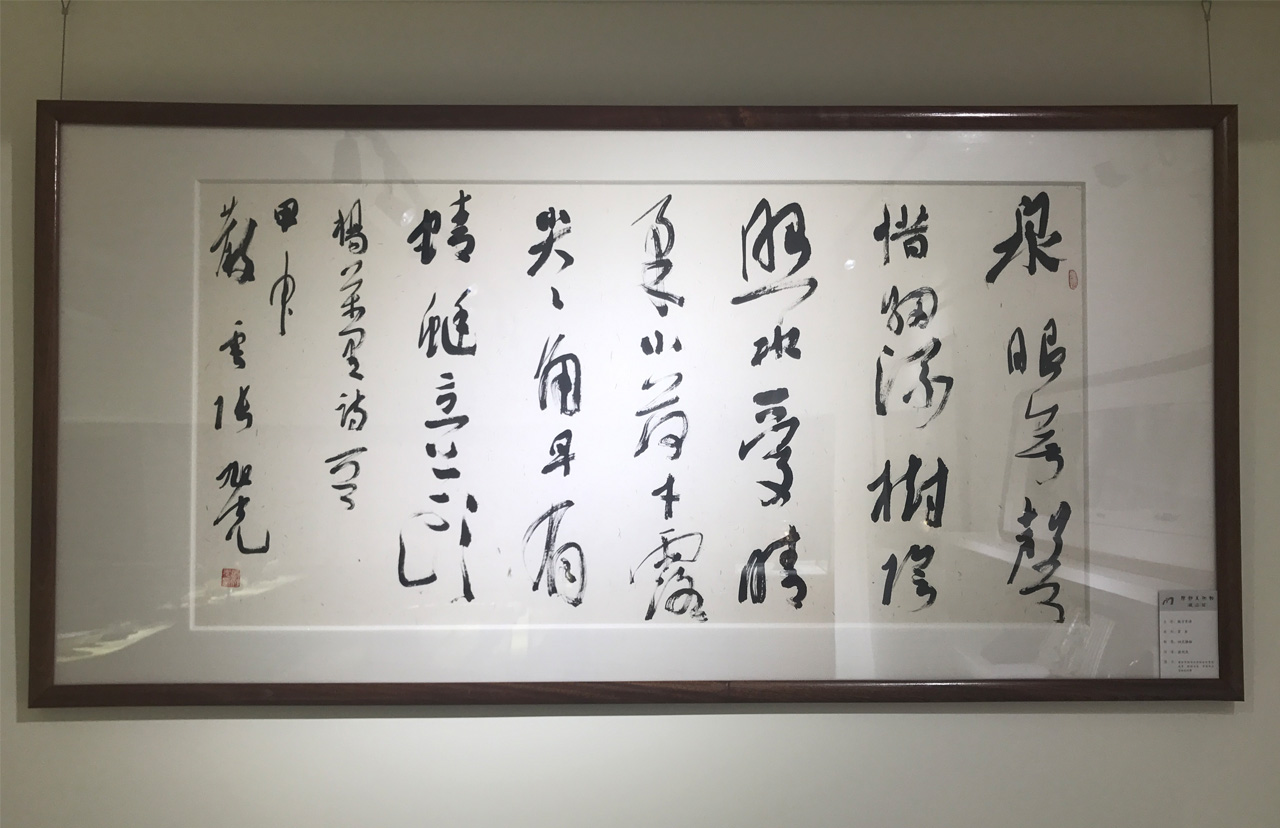 泉眼無聲
惜細流樹陰
照水愛晴
柔小荷才露
尖々角早有
蜻蜓立上頭
楊萬里詩一首
甲申
雲張旭光